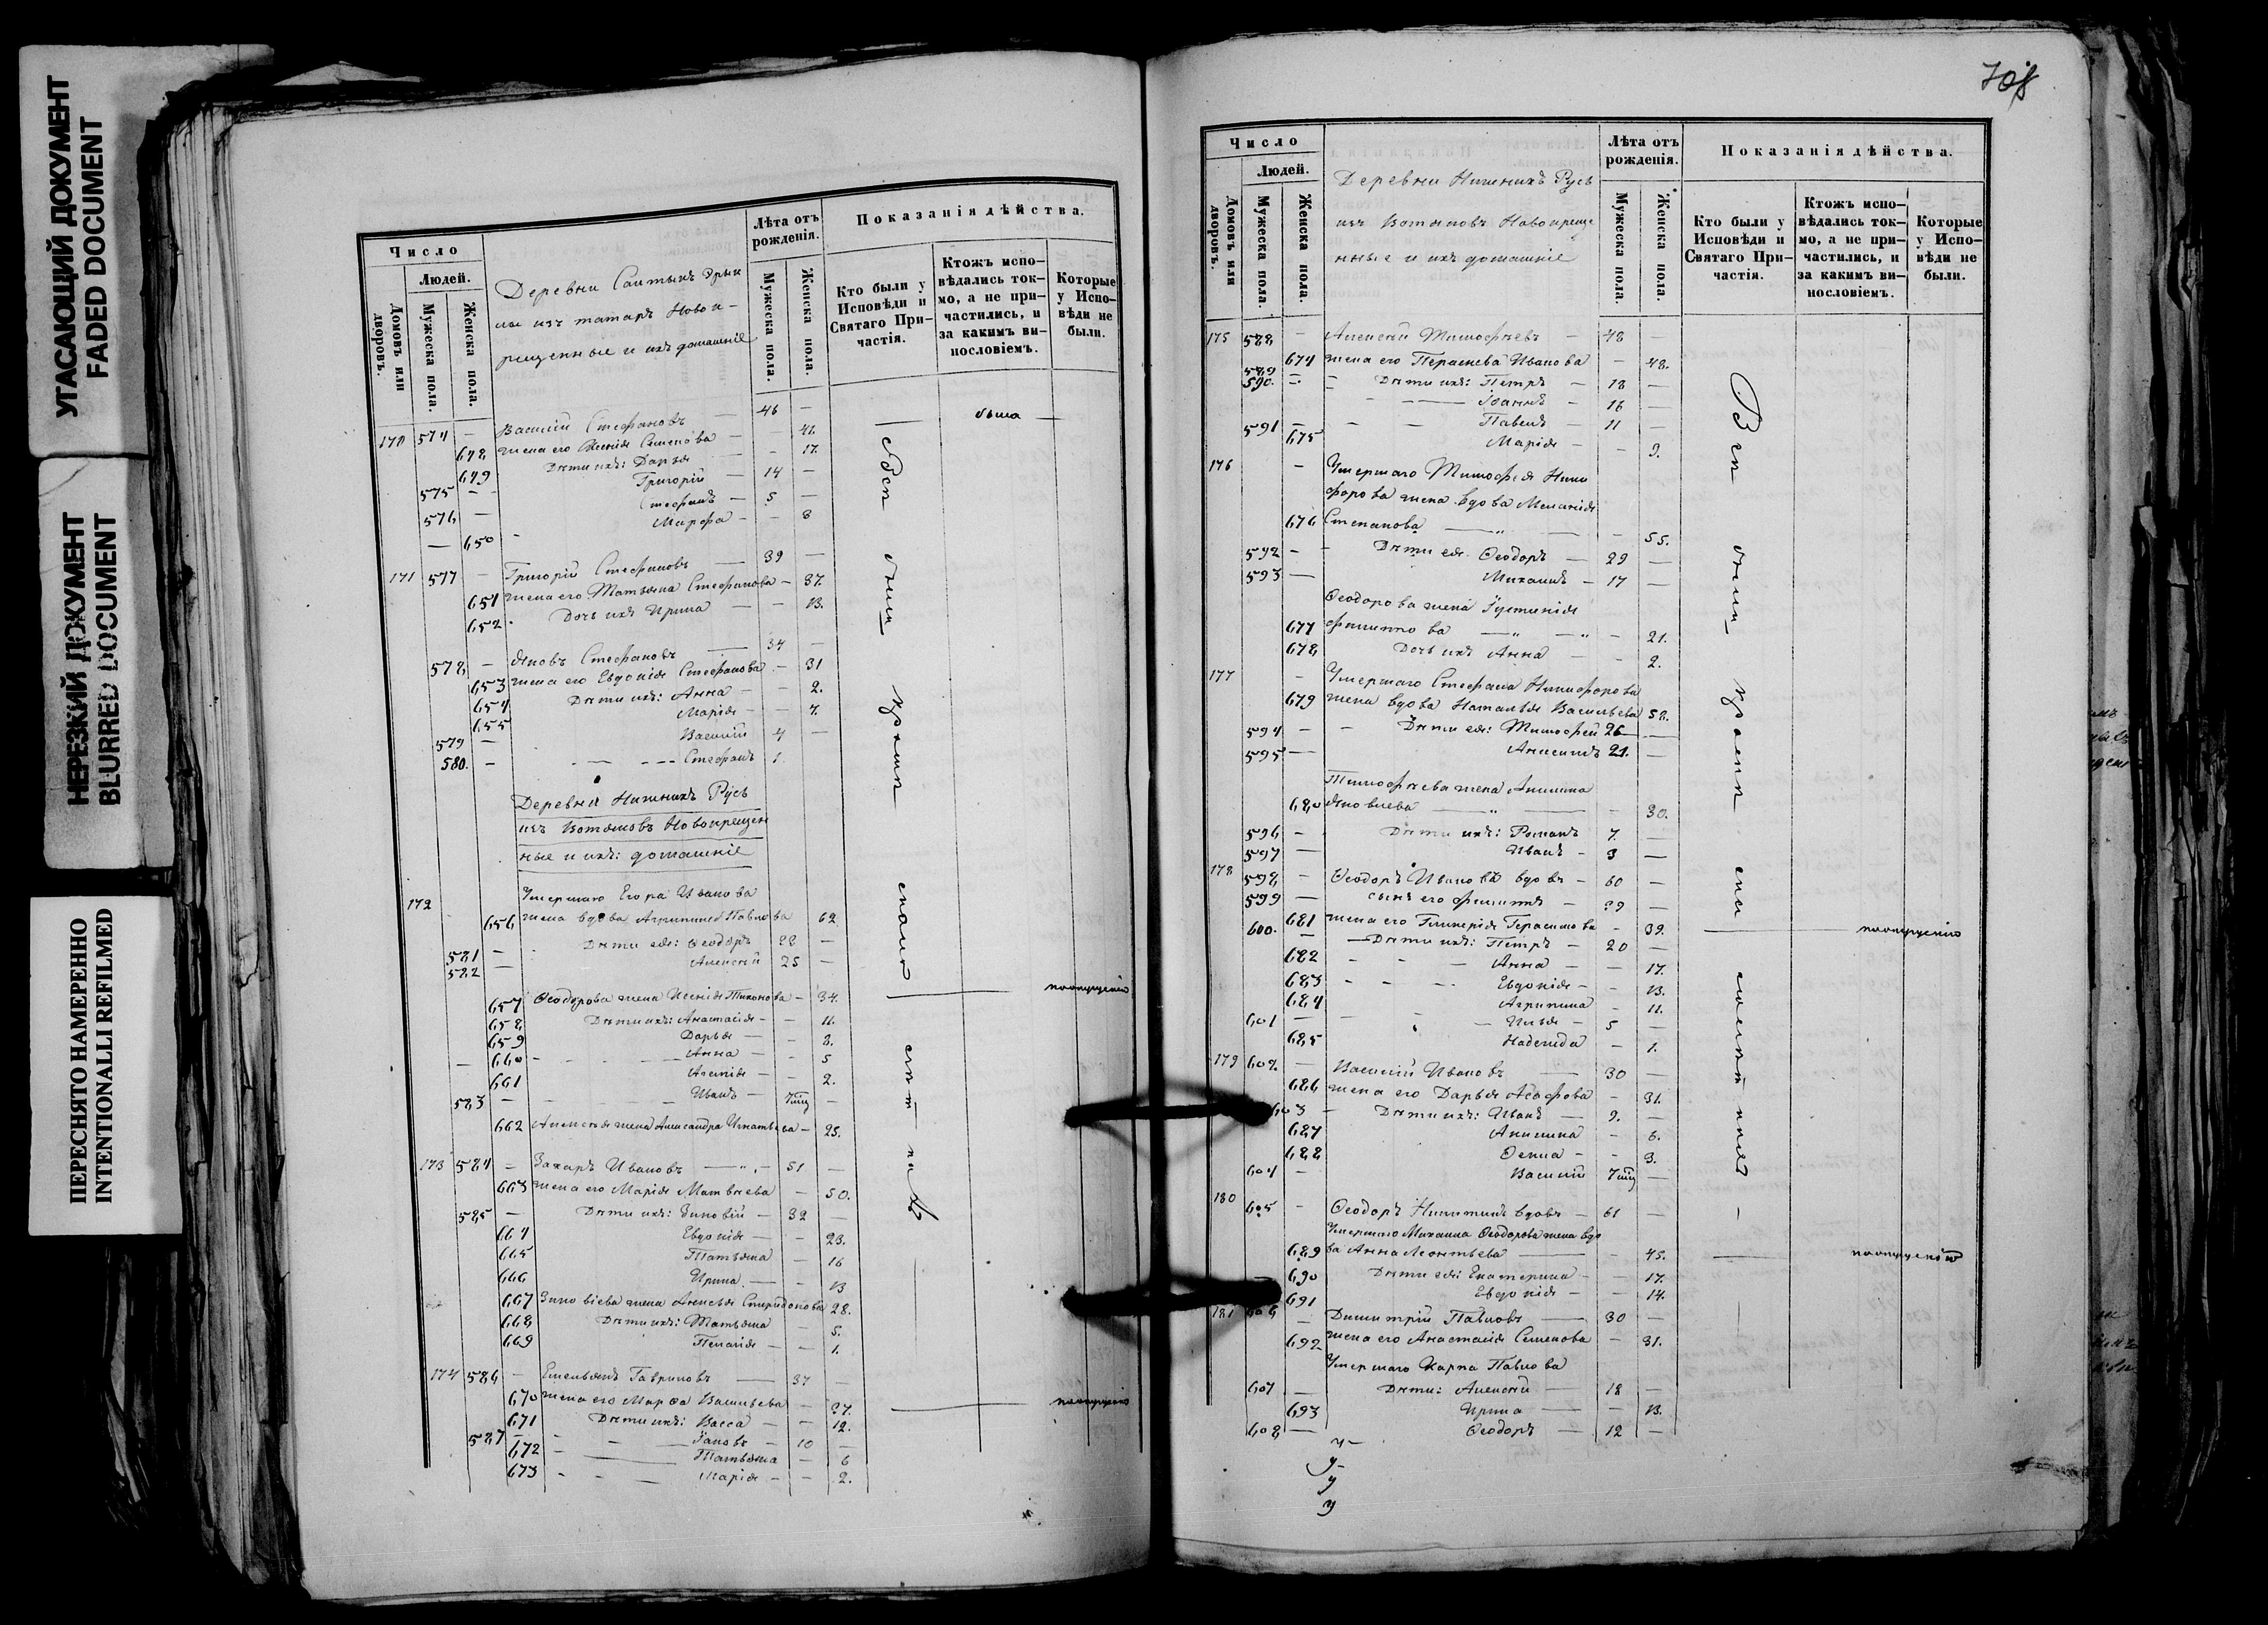 УГАСАЮЩИЙ ДОКУМЕНТ
FADED DOCUMENT
НЕРЕЗКИЙ ДОКУМЕНТ
BLURRED DOCUMENT
ПЕРЕСНЯТО НАМЕРЕННО
INTENTIONALLI REFILMED
Число
Людей.
Домовъ или дворовъ.
Мужеска пола.
Женска пола.
Деревни
ны изъ татаръ Новок-
рещенные и ихъ домашніе
Лѣта отъ рожденія.
Мужеска пола.
Женска пола.
Показанія дѣйства.
Кто были у Исповѣди и Святаго При-частія.
Ктожъ испо-вѣдались ток-мо, а не при-частились, и за какимъ ви-нословіемъ.
Которые у Испо-вѣди не были.
170 574 — Василій Стефановъ — 46 —
648 жена его Ксенія Семенова — — 41.
649 Дѣти ихъ: Дарья — - 17.
575 — Григорій — 14 —
576 — Стефанъ — 5 —
— 650 Марфа - - 8
171 577 — Григорій Стефановъ — 39 —
651 жена его Татьяна Стефанова - 37.
652 Дочь ихъ Ирина — - 13.
578 — Яковъ Стефановъ — 34 —
653 жена его Евдокія Стефанова - 31
654 Дѣти ихъ: Анна - - 2.
655 Марія - - 7.
579 — Василій 4 —
580. — Стефанъ 1.
Деревни Нижнихъ Русь
изъ Вотяковъ Новокрещен
ные и ихъ: домашніе
172 Умершаго Егора Иванова
656 жена вдова Агрипина Павлова 62
581 — Дѣти ея: Ѳеодоръ 28 —
582 — Алексѣй 25 —
657 Ѳеодорова жена Ксенія Тихонова - 34.
658 Дѣти ихъ: Анастасія - - 11.
659 Дарья — - 8.
— 660 - Анна — - 5
661 Агапія - - 2.
583 — Иванъ —
662 Алексѣя жена Александра Игнатьева - 25.
173 584 — Захаръ Ивановъ — 51 —
663 жена его Марія Матвѣева — 50.
585 — Дѣти ихъ: Зиновій — 32 —
664 Евдокія — - 23.
665 Татьяна — 16
666 Ирина — - 13
667 Зиновіева жена Аксинья Спиридонова 28.
668 Дѣти ихъ: Татьяна — 5.
669 Пелагія — - 1.
174 586 — Емельянъ Гавриловъ — 37 —
670 жена его Марѳа Васильева — 37.
671 Дѣти ихъ: Васса — - 12.
587 — Іаковъ — 10 —
672 — Татьяна — 6
673 Марія - - 2.
Число
Людей.
Домовъ или дворовъ.
Мужеска пола.
Женска пола.
Деревни Нижнихъ Русь
изъ Вотяковъ Новокреще
нные и ихъ домашніе
Лѣта отъ рожденія.
Мужеска пола.
Женска пола.
Показанія дѣйства.
Кто были у Исповѣди и Святаго При-частія.
Ктожъ испо-вѣдались ток-мо, а не при-частились, и за какимъ ви-нословіемъ.
Которые у Испо-вѣди не были.
175 588 — Алексѣй Тимофѣевъ — 48 —
674 жена его Параскева Иванова — 48.
589 Дѣти ихъ: Петръ — 18 —
590. Іоаннъ — 16 —
591 — Павелъ — 11 —
675 Марія - - 9.
176 — Умершаго Тимофея Ники
форова жена вдова Меланія
676 Степанова — - 55.
592 - Дѣти ея: Ѳеодоръ — 29 —
593 — Михаилъ - 17 —
Ѳеодорова жена Іустинія
677 Филиппова — - 21.
678 Дочь ихъ Анна — - 2.
177 — Умершаго Стефана Никифорова
679 жена вдова Наталья Васильева 58.
594 - Дѣти ея: Тимофей 26 —
595 — Анисимъ 21. —
Тимофѣева жена Акилина
680 Яковлева — - 30.
596 - Дѣти ихъ: Романъ 7. —
597 — Иванъ - 3 —
178 598 — Ѳеодоръ Ивановъ вдовъ — 60 —
599 — сынъ его Филиппъ — 39 —
681 жена его Гликерія Герасимова - 39.
600. — Дѣти ихъ: Петръ — 20 —
682 Анна — - 17.
683 Евдокія - - 13.
684 Агрипина - 11.
601 — Илья — 5 —
685 Надежда - 1.
179 602. — Василій Ивановъ — 30 —
686 жена его Дарья - 31.
603 - Дѣти ихъ: Иванъ — 9. —
687 Акилина - 6.
688 - 3.
604 — Василій
180 605 - Ѳеодоръ Никитинъ вдовъ - 61 —
Умершаго Михаила Ѳеодорова жена вдо
689 ва Анна Леонтьева — - 45.
690 Дѣти ея: Екатерина - - 17.
691 Евдокія - - 14.
181 606 — Димитрій Павловъ — 30 —
692 жена его Анастасія Семенова - 31.
Умершаго Карпа Павлова
607 — Дѣти: Алексѣй — 18 —
693 Ирина — - 13.
608 — Ѳеодоръ — 12 —